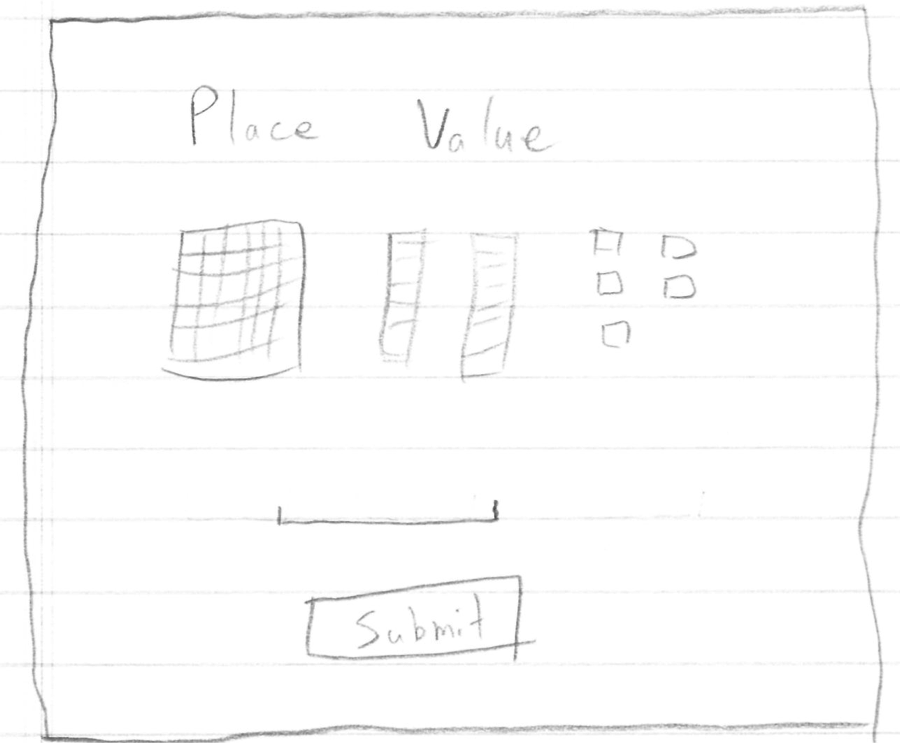 Place Value
Submit